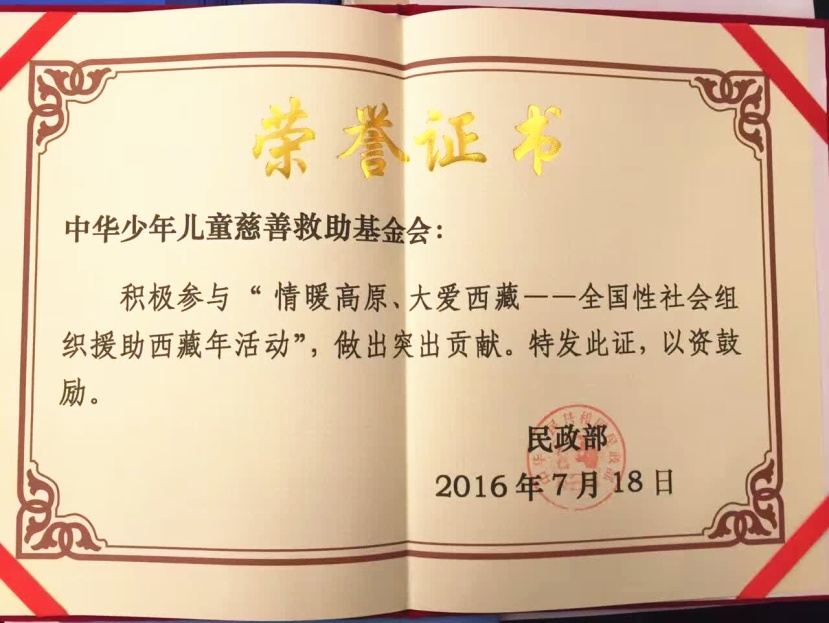 荣誉证书
中华少年儿童慈善救助基金会：
积极参与“情暖高原、大爱西藏——全国性社会组
织援助西藏年活动”，做出突出贡献。特发此证，以资鼓
励。
民政部
2016年7月18日
中华人民共和国民政部